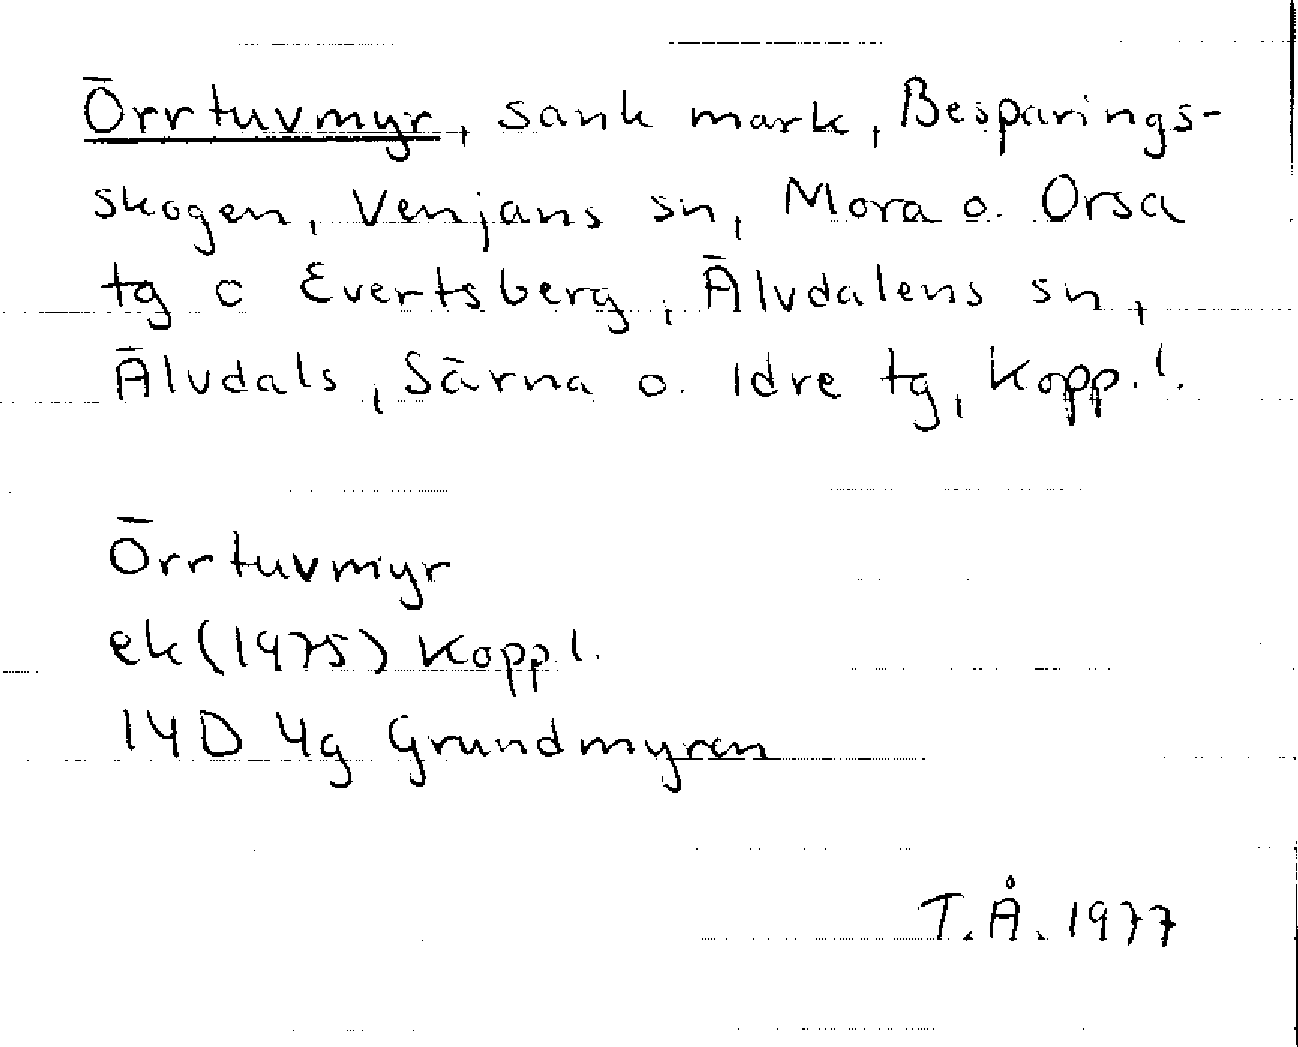 Örrtuvmyr, sank mark, Besparings-
skogen, Venjans sn, Mora o. Orsa
tg o Evertsberg, Älvdalens sn,
Älvdals, Särna o. Idre tg, Kopp.l.
Örrtuvmyr
ek (1975) Kopp l.
14D 4g Grundmyren
T.Å. 1977